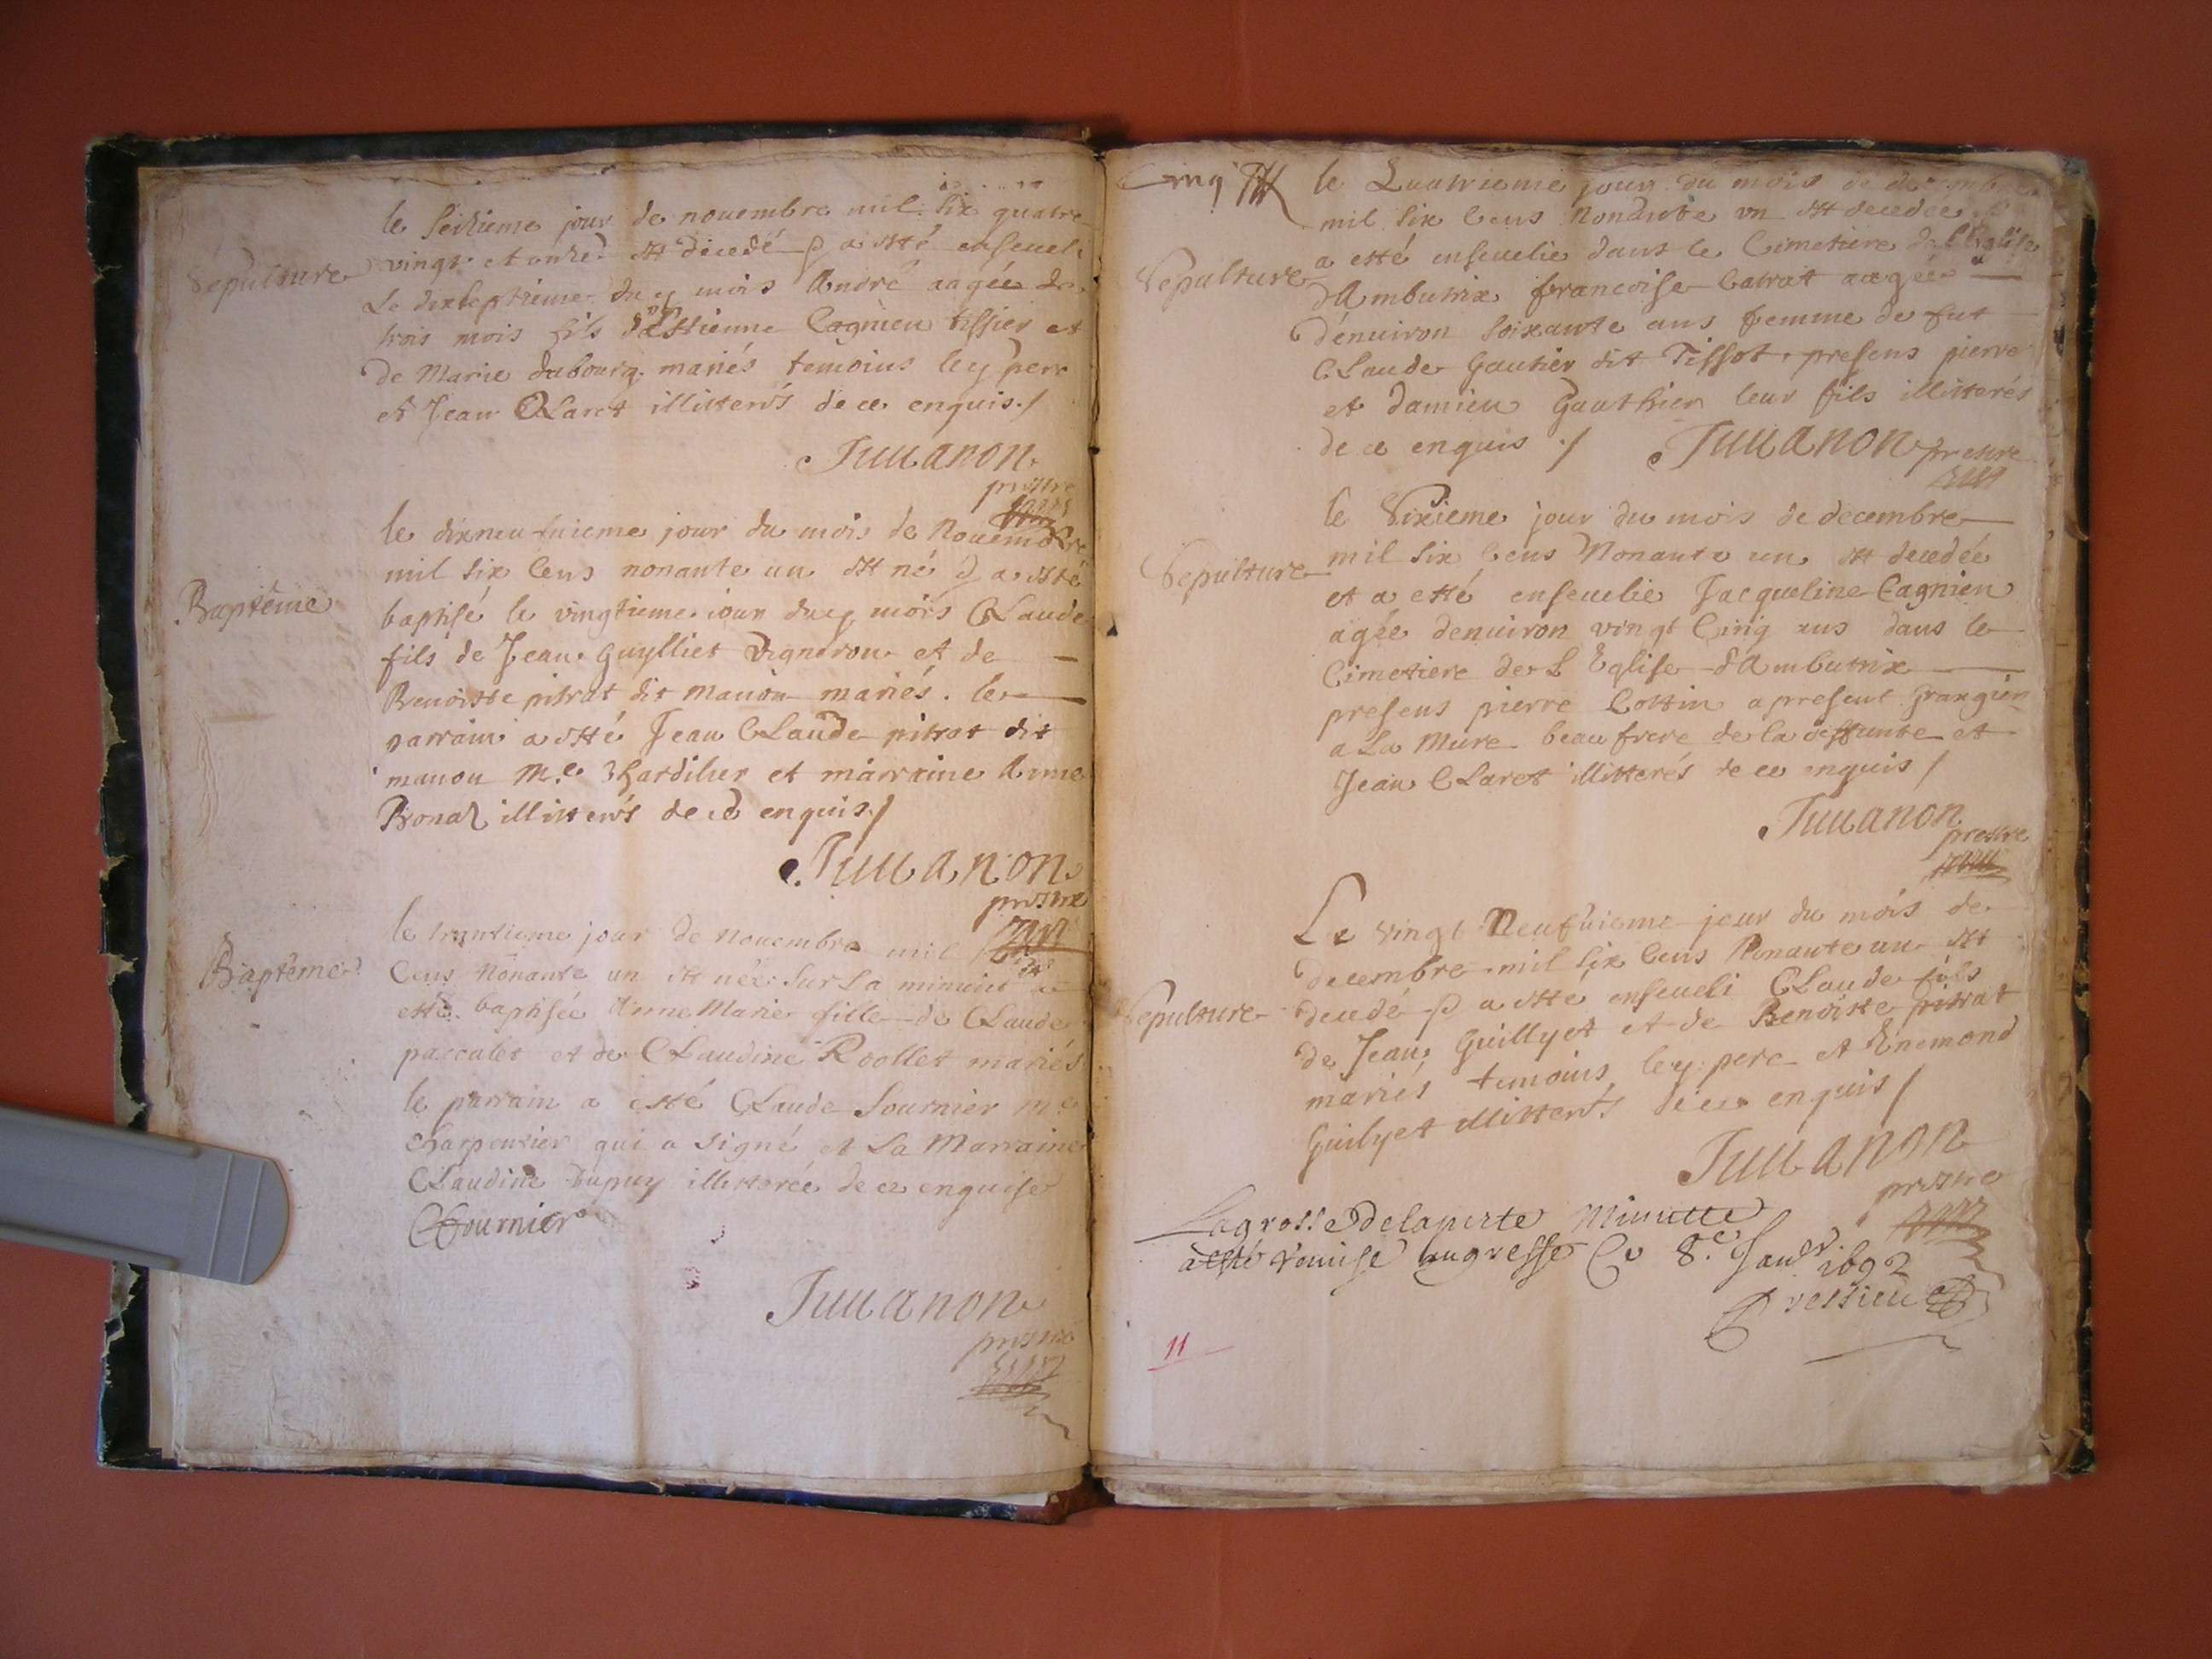 Sépulture
le Seizieme jour de nouembre mil six quatre
vingt et onze est decedé & a esté enseueli
Le dixseptieme dud. mois André aagée de
trois mois fils d'Estienne Cagnieu tissier et
de Marie dubourg mariés temoins led. pere
et Jean CLaret illitterés de ce enquis./
Juuanon
prestre
Baptême
le dixneufuieme jour du mois de Nouembre
mil six Cens nonante un est né & a esté
baptisé le vingtieme iour dud. mois CLaude
fils de Jean Guylliet Vigneron et de
Benoiste pitrat dit manon mariés. le
parrain a esté Jean CLaude pitrat dit
manon M.e et marraine Anne
illitterés de ce enquis./
Juuanon
prestre
Baptême
le trentieme jour de nouembre mil six
Cens Nonante un est née sur La minuit a
esté baptisée Anne Marie fille de CLaude
paccalet et de CLaudine Roollet mariés
le parrain a esté CLaude fournier m.e
Charpentier qui a signé et La Marraine
CLaudine Dupuy illitterée de ce enquise
CFournier
Juuanon
prestre
Cinq
Sepulture
le Quatrieme jour du mois de decembre
mil six Cens Nonante un est decedée &
a esté enseuelie dans le Cimetiere de l'Eglise
d'Ambutrix francoise Catrat aagée
d'énuiron soixante ans femme de fut
CLaude Gautier dit Tissot, presens pierre
et damien Gauthier leur fils illitterés
de ce enquis ./ Juuanon prestre
Sepulture
le Sixieme jour du mois de decembre
mil six Cens Nonante un est decedée
et a esté enseuelie Jacqueline Cagnien
agée denuiron vingt Cinq ans dans le
Cimetiere de L Eglise d'Ambutrix
presens pierre Cottin a present grangier
a La Mure beau frere de la deffunte et
Jean CLaret illitterés de ce enquis /
Juuanon
prestre
Sepulture
Le vingt Neufuieme jour du mois de
decembre mil six Cens Nonante un est
decedé & a esté enseueli CLaude fils
de Jean Guillyet et de Benoiste pitrat
mariés temoins led. pere et Enemond
Guilyet illitterés de ce enquis /
Juuanon
prestre
Lagrosse delapnte Minutte
a esté remise augreffe Ce 8.e Janer. 1692
11